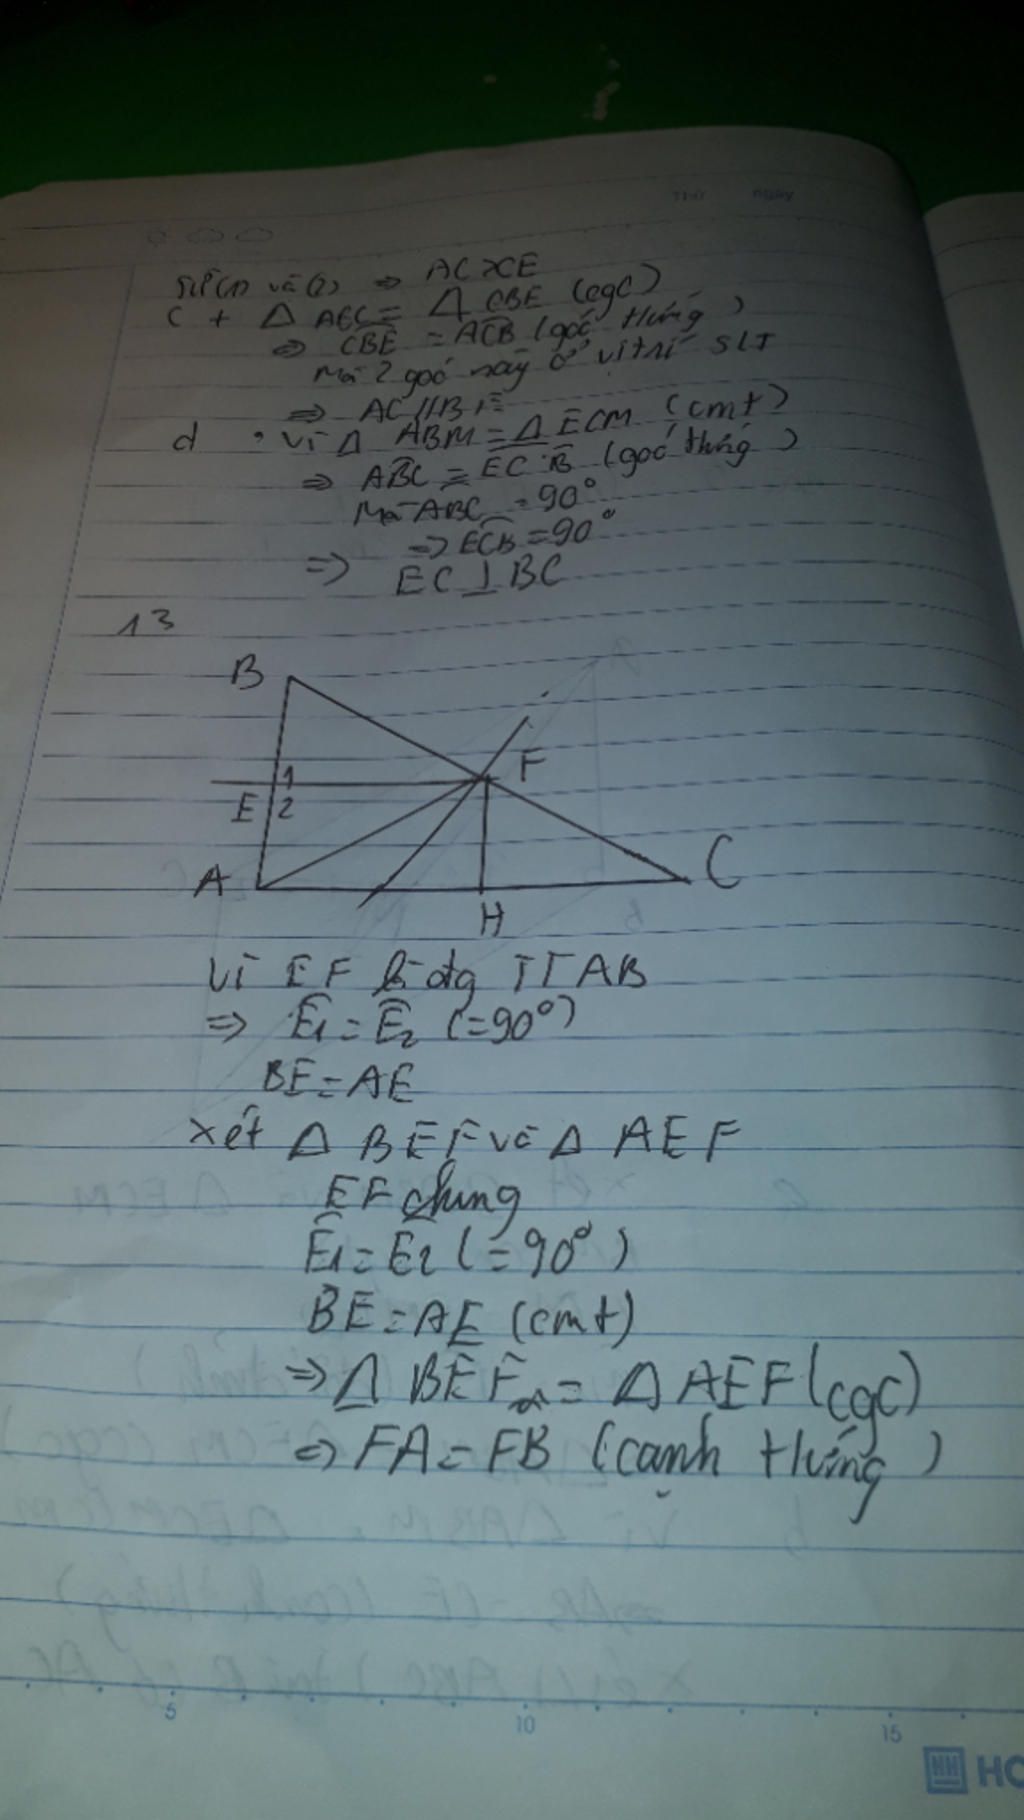 Thứ ngày
và (2) ⇒ AC > CE
c + Δ AEC = Δ CBE (cgc)
⇒ CBE = ACB (góc t/ứng)
Mà 2 góc này ở vị trí SLT
⇒ AC // BE
d • Vì Δ ABM = Δ ECM (cmt)
⇒ ABC = ECB (góc t/ứng)
Mà ABC = 90°
⇒ ECB = 90°
⇒ EC ⊥ BC
13
B
F
1
E 2
A
C
H
Vì EF là đtg TT AB
⇒ E1 = E2 (=90°)
BE = AE
xét Δ BEF và Δ AEF
EF chung
E1 = E2 (=90°)
BE = AE (cmt)
⇒ Δ BEF = Δ AEF (cgc)
⇒ FA = FB (cạnh t/ứng)
5 10 15
HO